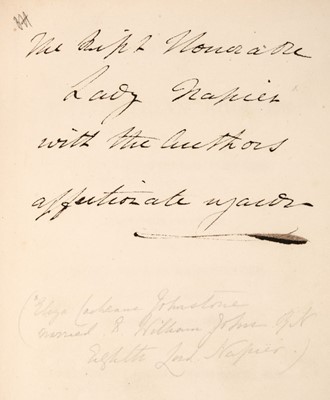 The Right Honorable
Lady Napier
with the Authors
affectionate regards
(Eliza Cochrane Johnstone
married to William John
Eighth Lord Napier.)